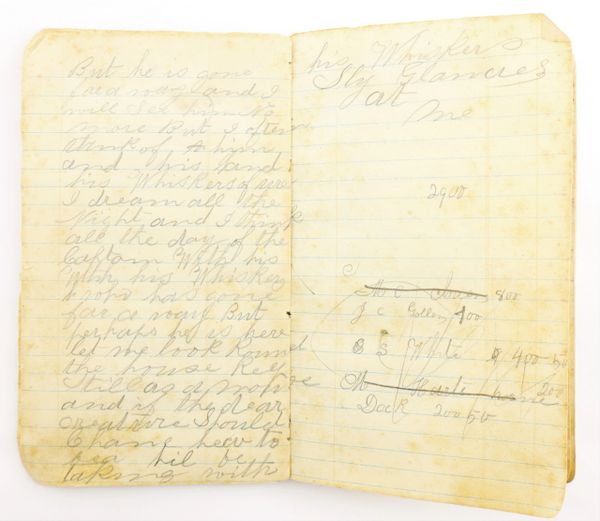 But he is gone
far away and I
will See him No
more But I often
think of him
and his and
his Whiskers
I dream all the
Night and I think
all the day of the
Captom With his
his Whisker
has gone
far a way But
perhaps he is here
let me look Round
the house Keep
Still as a mouse
and if the dear
creature Should
Chanc to
be
taking with
his Whiskers
Sly Glances
at
me
2900
800
J C 400
E S White 400
200
Dock 200 50